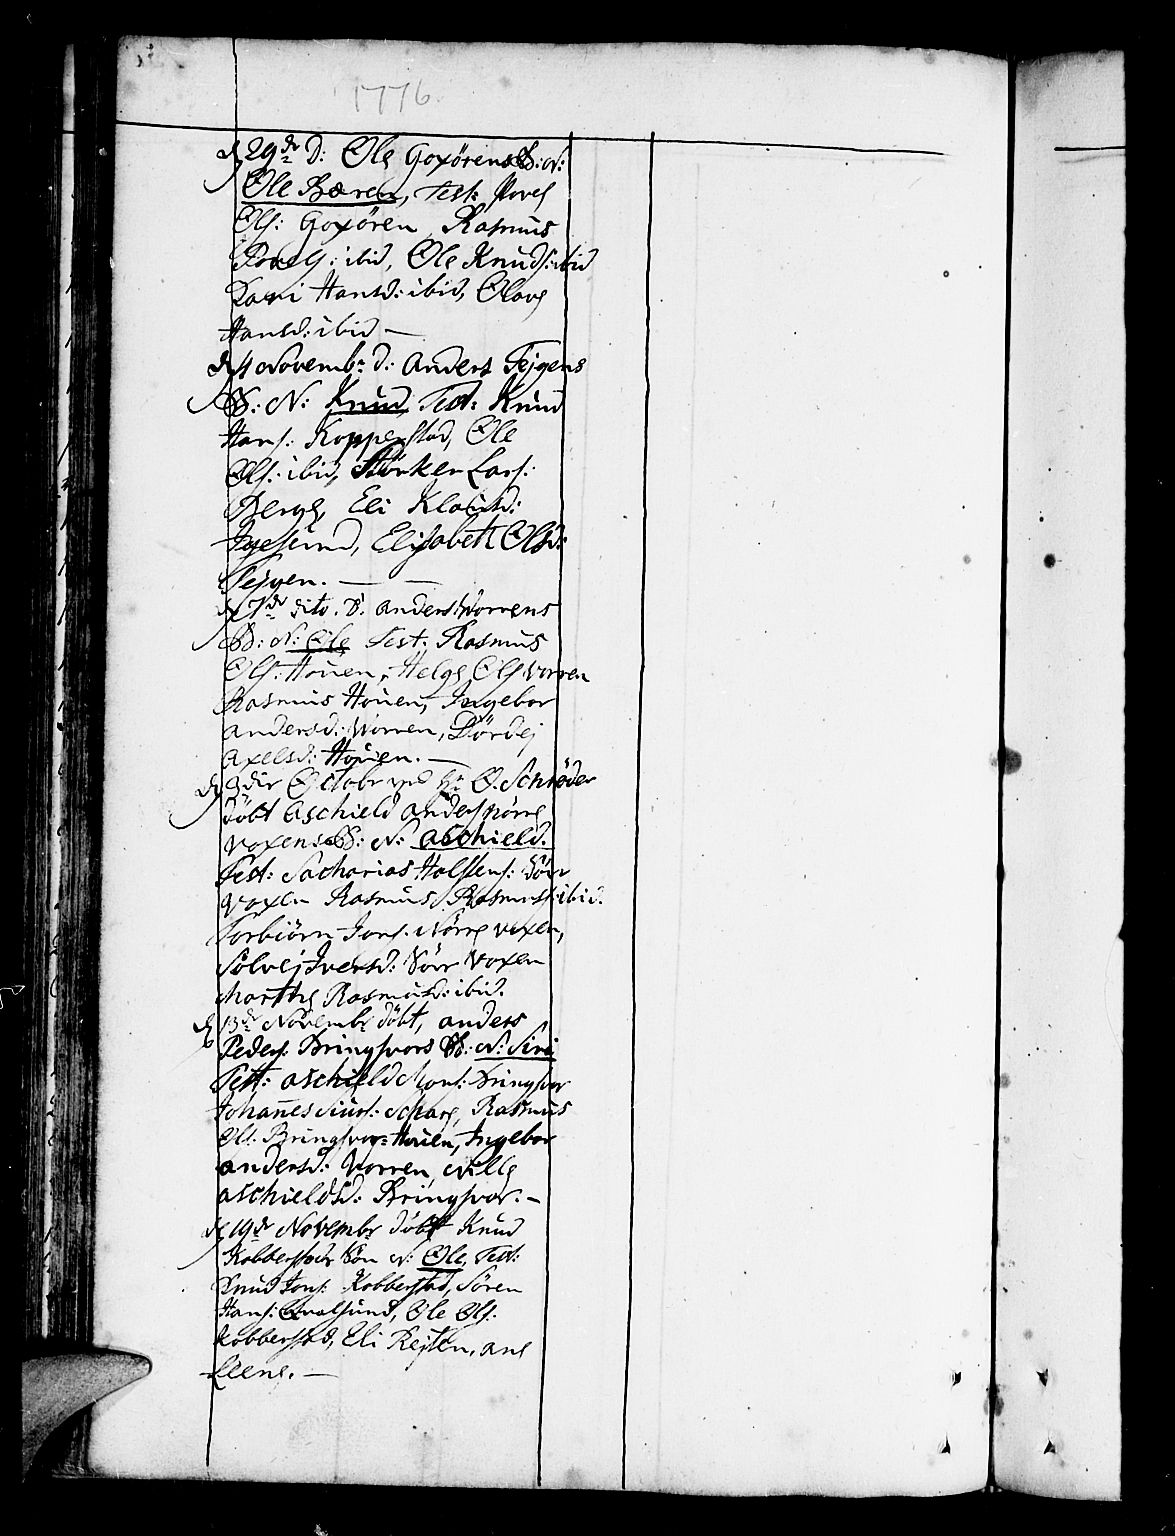 1776
d 29de D: Ole Goxörens B: N:
Ole Bæren, Test: Povel
Ols: Goxören, Rasmus
Povels: ibid, Ole Knuds: ibid
Kari Hansd: ibid, Olave
Hansd: ibid —
d 4 Novembr: d: Anders Tejgens
B: N: Knud, Test: Knud
Hans: Kopperstad, Ole
Ols: ibid, Störker Lars:
Berge, Eli Klausd:
Igesund, Elisabeth Olsd:
Tejgen. — —
d 7de dito. D. Anders Worrens
B: N: Ole Test: Rasmus
Ols: Houen, Helge Ols Vorren
Rasmus Houen, Ingebor
Andersd: Worren, Dördej
Axelsd: Houen. —
d 3die Octobr ved Hr O. Schröder
döbt Aschield Anders Nörre
Voxens B: N: Aschield.
Test: Sacharias Halstens: Sörr
Voxen Rasmus Rasmuss: ibid.
Torbiörn Jons. Nörre Voxen,
Solvej Iversd: Sörr Voxen
Marthe Rasmusd: ibid.
d 13de Novembr döbt, Anders
Peders: Bringsvors B: N: Siri
Test: Aschield Mons: Bringsvor
Johannes Siurs: Schare, Rasmus
Ols. Bringsvor: Houen, Ingebor
Andersd: Vorren, Mille
Aschieldsd: Bringsvor. —
d 19de Novembr döbt Knud
Kobberstads Sön N: Ole, Test:
Knud Jons: Kobberstad, Sören
Hans: Qvalsund, Ole Ols.
Kobberstad, Eli Rejten, Ane
Leene. —